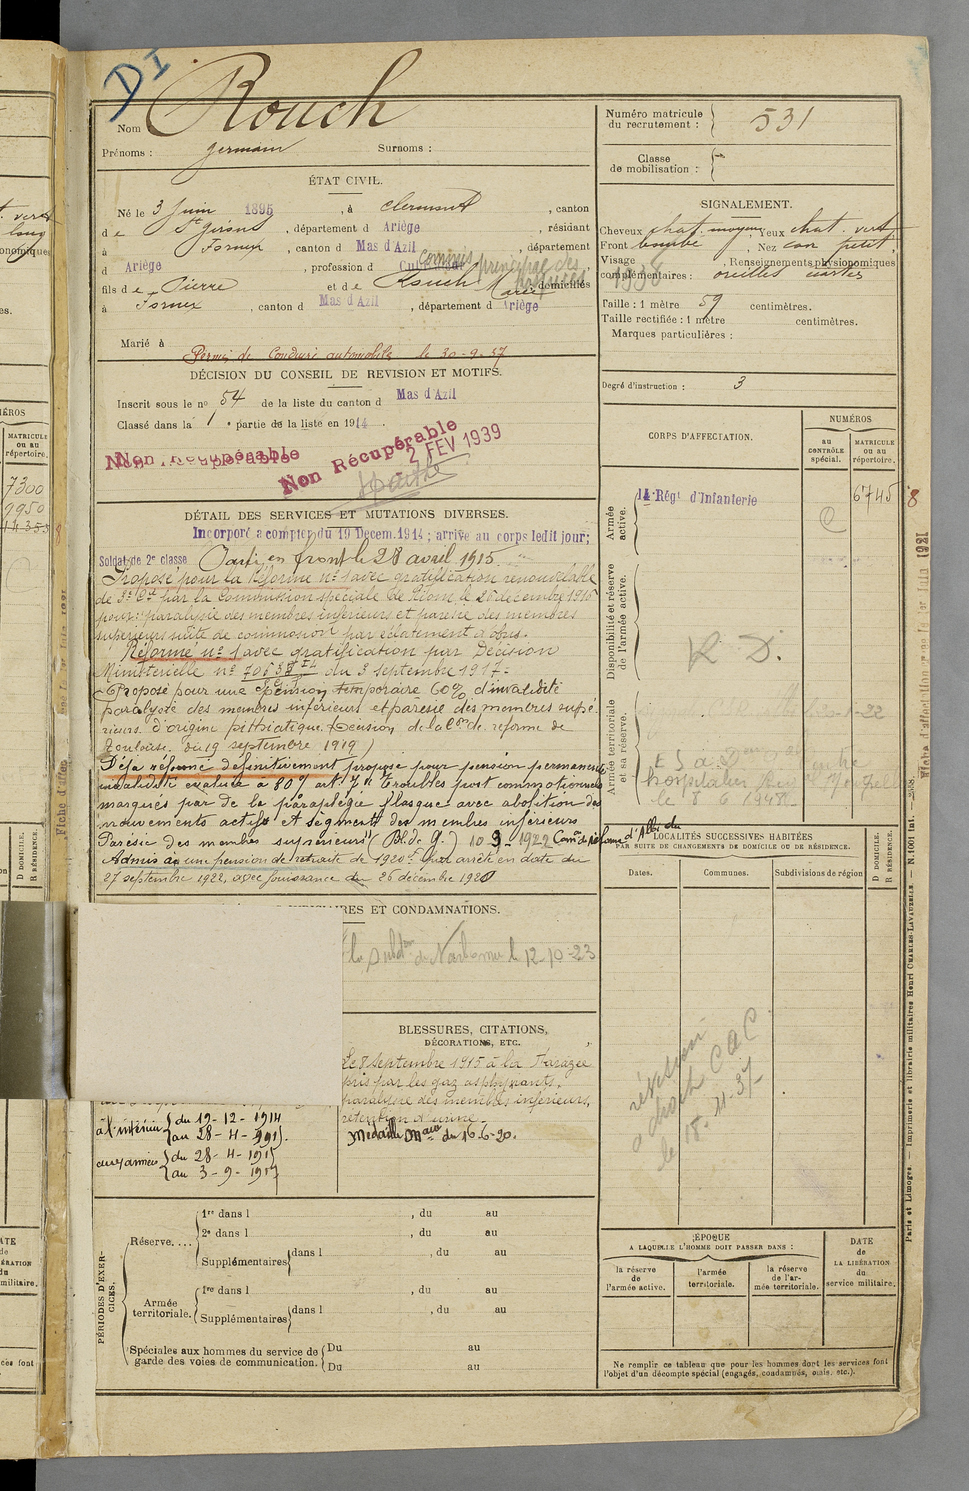 DI
Nom Rouch
Prénoms : Germain Surnoms :
Numéro matricule du recrutement : 531
Classe de mobilisation :
ÉTAT CIVIL.
Né le 3 Juin 1895, à Clermont, canton
de St Girons, département d Ariège, résidant
à Fornex, canton d Mas d'Azil, département
d Ariège, profession d Cultivateur commis principal des hospices
fils de Pierre et de Rouch Marie domiciliés
à Fornex, canton d Mas d'Azil, département d Ariège
Marié à
Permis de Conduire automobile le 30-9-37
SIGNALEMENT.
Cheveux chat. moyen, Yeux chat. vert
Front bombé, Nez petit
Visage, Renseignements physionomiques
complémentaires : oreilles écartées
1938
Taille : 1 mètre 59 centimètres.
Taille rectifiée : 1 mètre centimètres.
Marques particulières :
Degré d'instruction : 3
DÉCISION DU CONSEIL DE REVISION ET MOTIFS.
Inscrit sous le no 54 de la liste du canton d Mas d'Azil
Classé dans la 1 e partie de la liste en 1914.
Non Récupérable
Non Récupérable
2 FEV 1939
DÉTAIL DES SERVICES ET MUTATIONS DIVERSES.
Incorporé à compter du 19 Decem. 1914 ; arrivé au corps ledit jour;
Soldat de 2e classe Parti en front le 28 avril 1915.
Proposé pour la Réforme no 1 avec gratification renouvelable
de 3e Cie par la Commission spéciale de Riom le 26 décembre 1916
pour : paralysie des membres inférieurs et parésie des membres
supérieurs suite de commotion par éclatement d'obus.
Réformé no 1 avec gratification par Décision
Ministérielle no du 3 septembre 1917.
Proposé pour une pension temporaire 60% d'invalidité
paralysie des membres inférieurs et parésie des membres supé-
rieurs d'origine pithiatique. (Décision de la Con de réforme de
Toulouse du 19 septembre 1919)
Déjà réformé définitivement proposé pour pension permanente
invalidité évaluée à 80% art 7 "Troubles post commotionnels
marqués par de la paraplégie flasque avec abolition des
mouvements actifs et segments des membres inférieurs
Parésie des membres supérieurs" (Bl. de G.) 10-3-1922 Com. de réforme d'Albi du
Admis à une pension de retraite de 1920f par arrêté en date du
27 septembre 1922, avec jouissance du 26 décembre 1920
CORPS D'AFFECTATION.
NUMÉROS
au CONTRÔLE spécial.
MATRICULE ou au répertoire.
Armée active.
14 Régt d'Infanterie
6745
Disponibilité et réserve de l'armée active.
R. D.
Armée territoriale et sa réserve.
hospitalier
le 8 6 1948
LOCALITÉS SUCCESSIVES HABITÉES
PAR SUITE DE CHANGEMENTS DE DOMICILE OU DE RÉSIDENCE.
Dates. Communes. Subdivisions de région
D DOMICILE. R RÉSIDENCE.
révision
à droit CAC
le 18.11.37
ET CONDAMNATIONS.
de Narbonne le 12-10-23
BLESSURES, CITATIONS,
DÉCORATIONS, ETC.
Le 8 septembre 1915 à la Harazée
pris par les gaz asphyxiants,
paralysie des membres inférieurs,
rétention d'urine.
Médaille Mre du 16-6-20.
à l'intérieur du 19-12-1914
au 28-4-1915.
aux armées du 28-4-1915
au 3-9-1917
PÉRIODES D'EXERCICES.
Réserve....
1re dans l , du au
2e dans l , du au
Supplémentaires dans l , du au
Armée territoriale.
1re dans l , du au
Supplémentaires dans l , du au
Spéciales aux hommes du service de garde des voies de communication.
Du au
Du au
ÉPOQUE
A LAQUELLE L'HOMME DOIT PASSER DANS :
la réserve de l'armée active.
l'armée territoriale.
la réserve de l'armée territoriale.
DATE de LA LIBÉRATION du service militaire.
Ne remplir ce tableau que pour les hommes dont les services font
l'objet d'un décompte spécial (engagés, condamnés, omis, etc.).
Paris et Limoges. — Imprimerie et librairie militaires Henri CHARLES-LAVAUZELLE. — N. 1001 int.